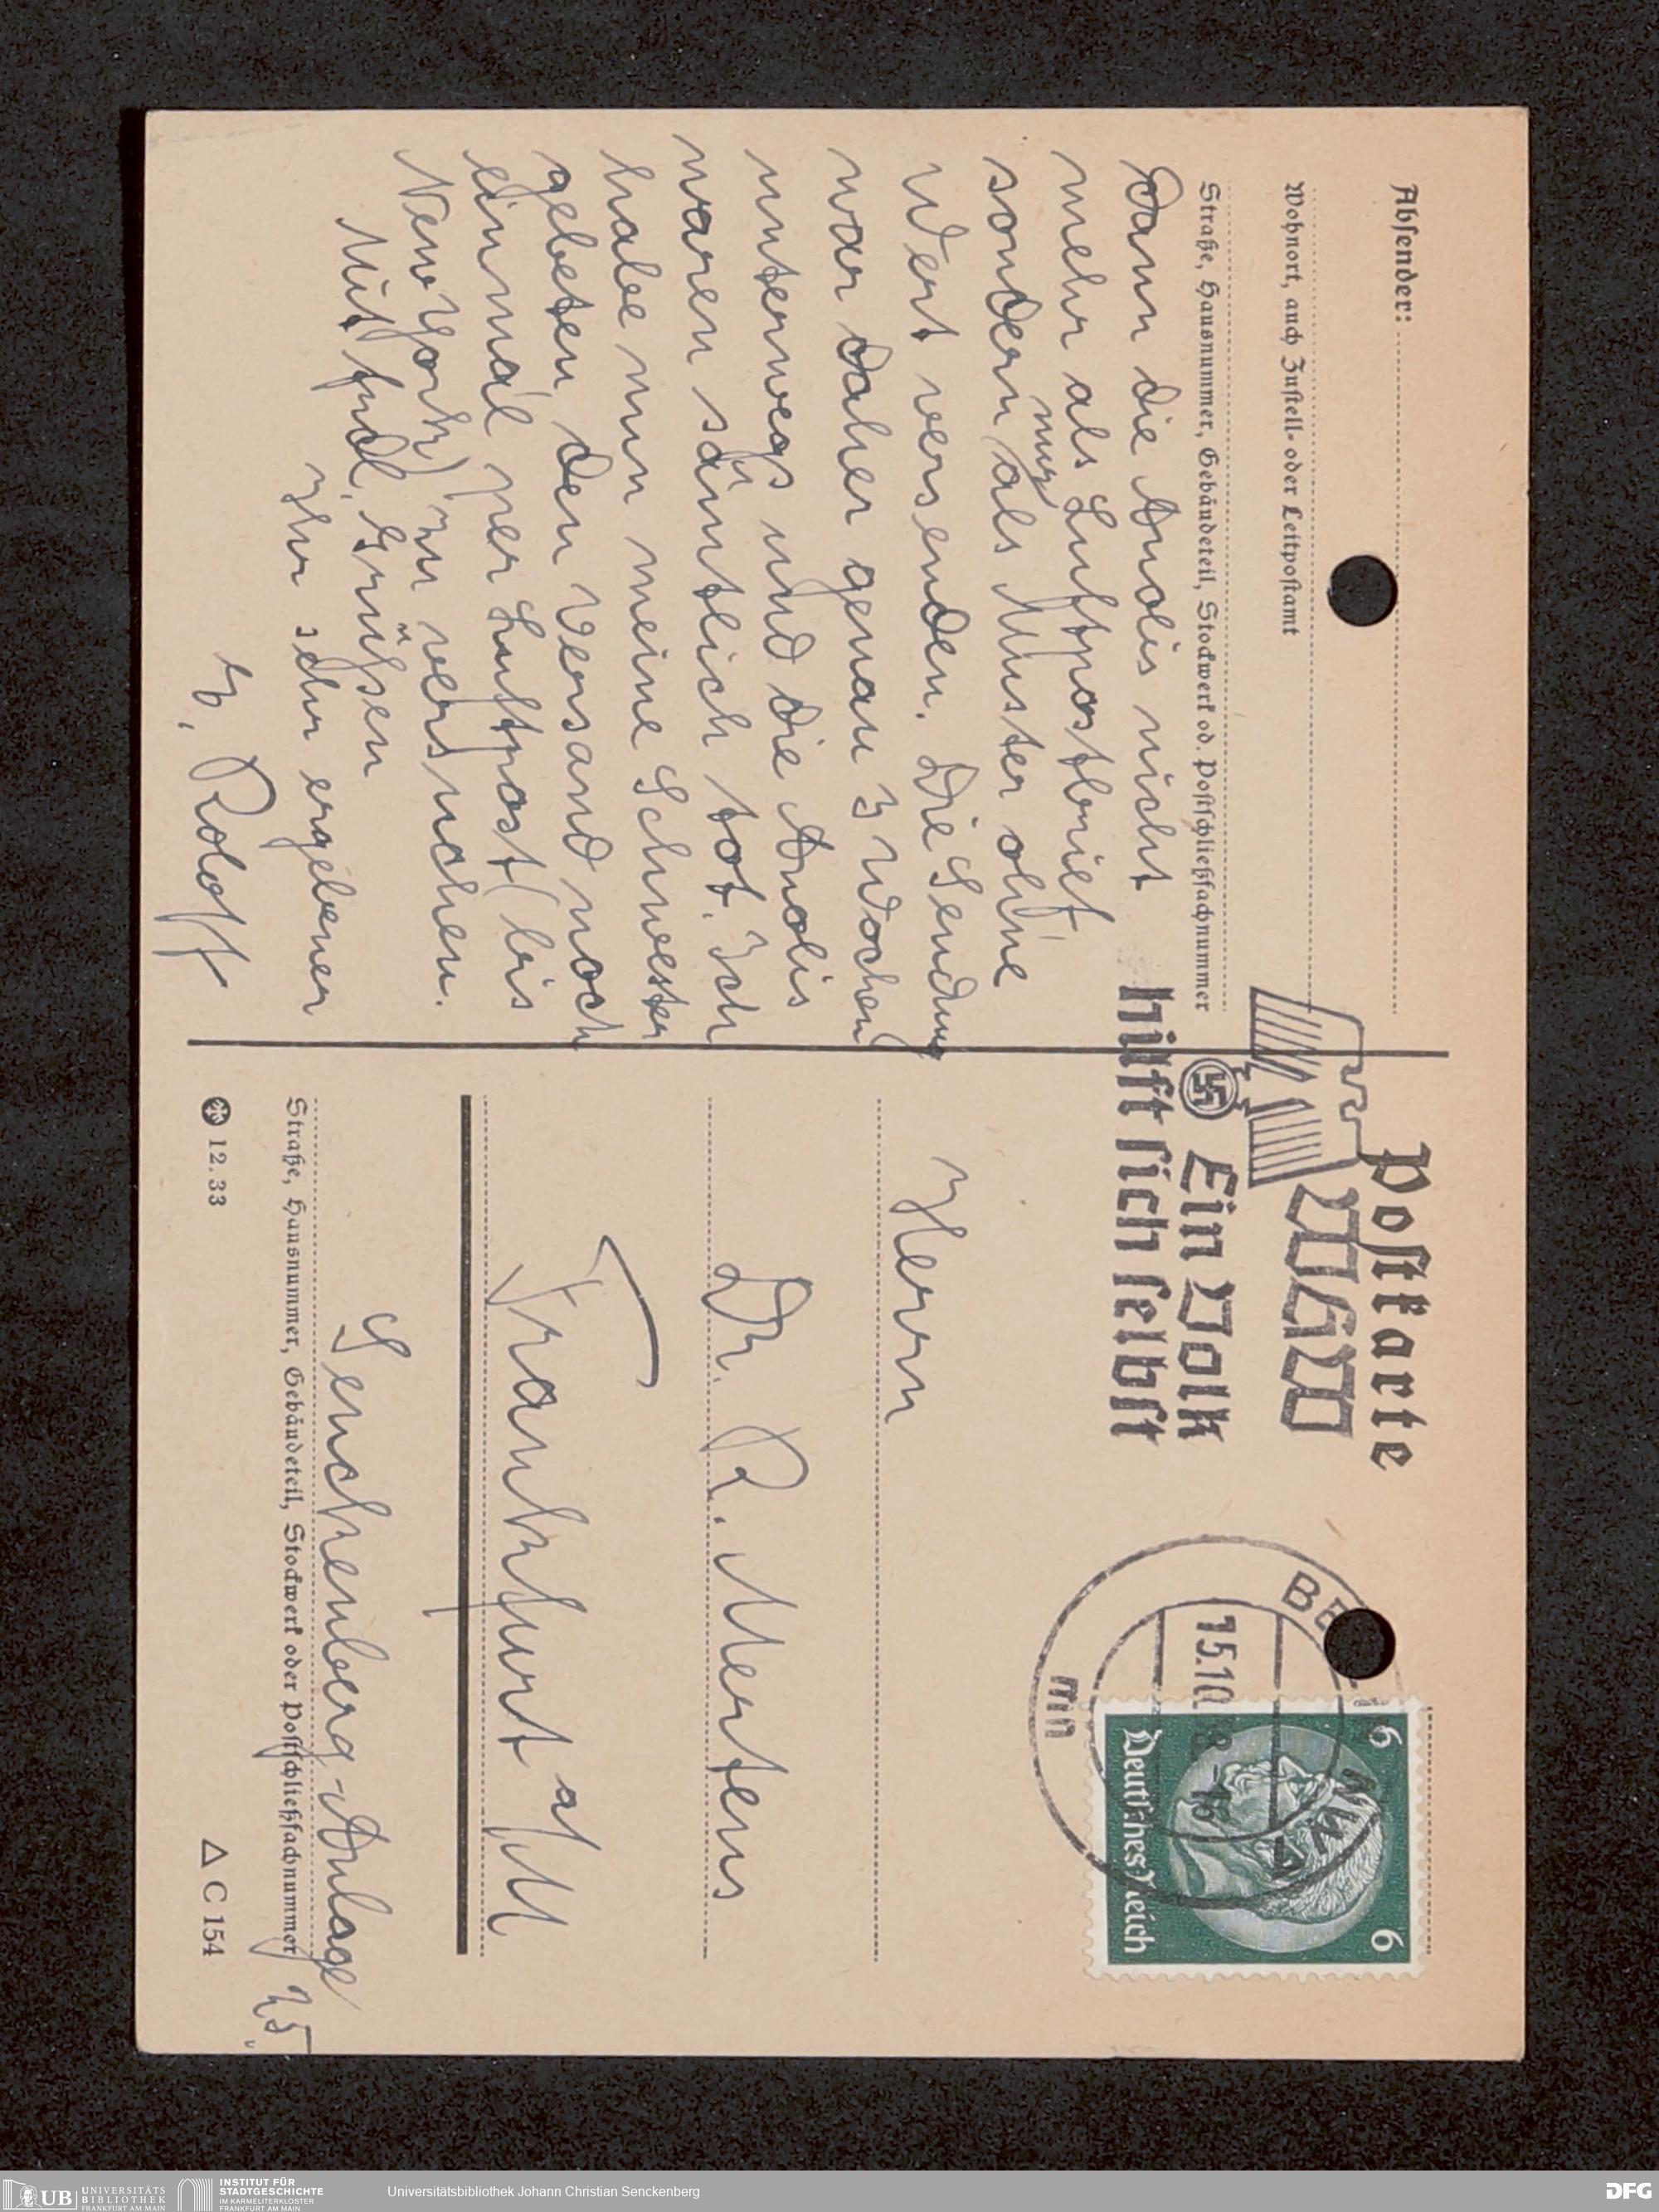 Absender:
Wohnort, auch Zustell- oder Leitpostamt
Straße, Hausnummer, Gebäudeteil, Stockwerk od. Postschließfachnummer
dann die Anolis nicht
mehr als Luftpostbrief
nur
sondern als Muster ohne
Wert versenden. Die Sendung
war daher genau 3 Wochen
unterwegs und die Anolis
waren sämtlich tot. Ich
habe nun meine Schwester
gebeten, den Versand noch
einmal per Luftpost (bis
New York) zu versuchen.
Mit frdl. Grüßen
Ihr sehr ergebener
E. Roloff
Postkarte
WHW
Ein Volk
hilft sich selbst
BE
15.10.38 -16
mn
6 6
Deutsches Reich
Herrn
Dr. R. Mertens
Frankfurt a/M
Senckenberg-Anlage 25
Straße, Hausnummer, Gebäudeteil, Stockwerk oder Postschließfachnummer
12. 33
Δ C 154
UB UNIVERSITÄTS BIBLIOTHEK FRANKFURT AM MAIN
INSTITUT FÜR STADTGESCHICHTE IM KARMELITERKLOSTER FRANKFURT AM MAIN
Universitätsbibliothek Johann Christian Senckenberg
DFG